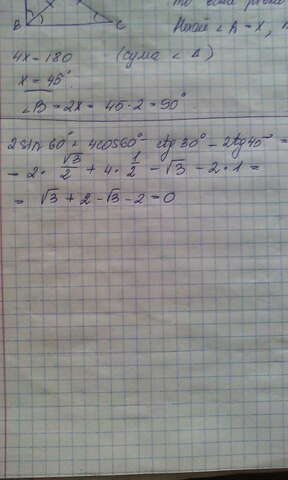 B C
Нехай ∠A = x,
4x = 180 (сума ∠ Δ)
x = 45°
∠B = 2x = 45 · 2 = 90°
2 sin 60° + 4cos60° - ctg 30° - 2tg45° =
= 2 · √3/2 + 4 · 1/2 - √3 - 2 · 1 =
= √3 + 2 - √3 - 2 = 0